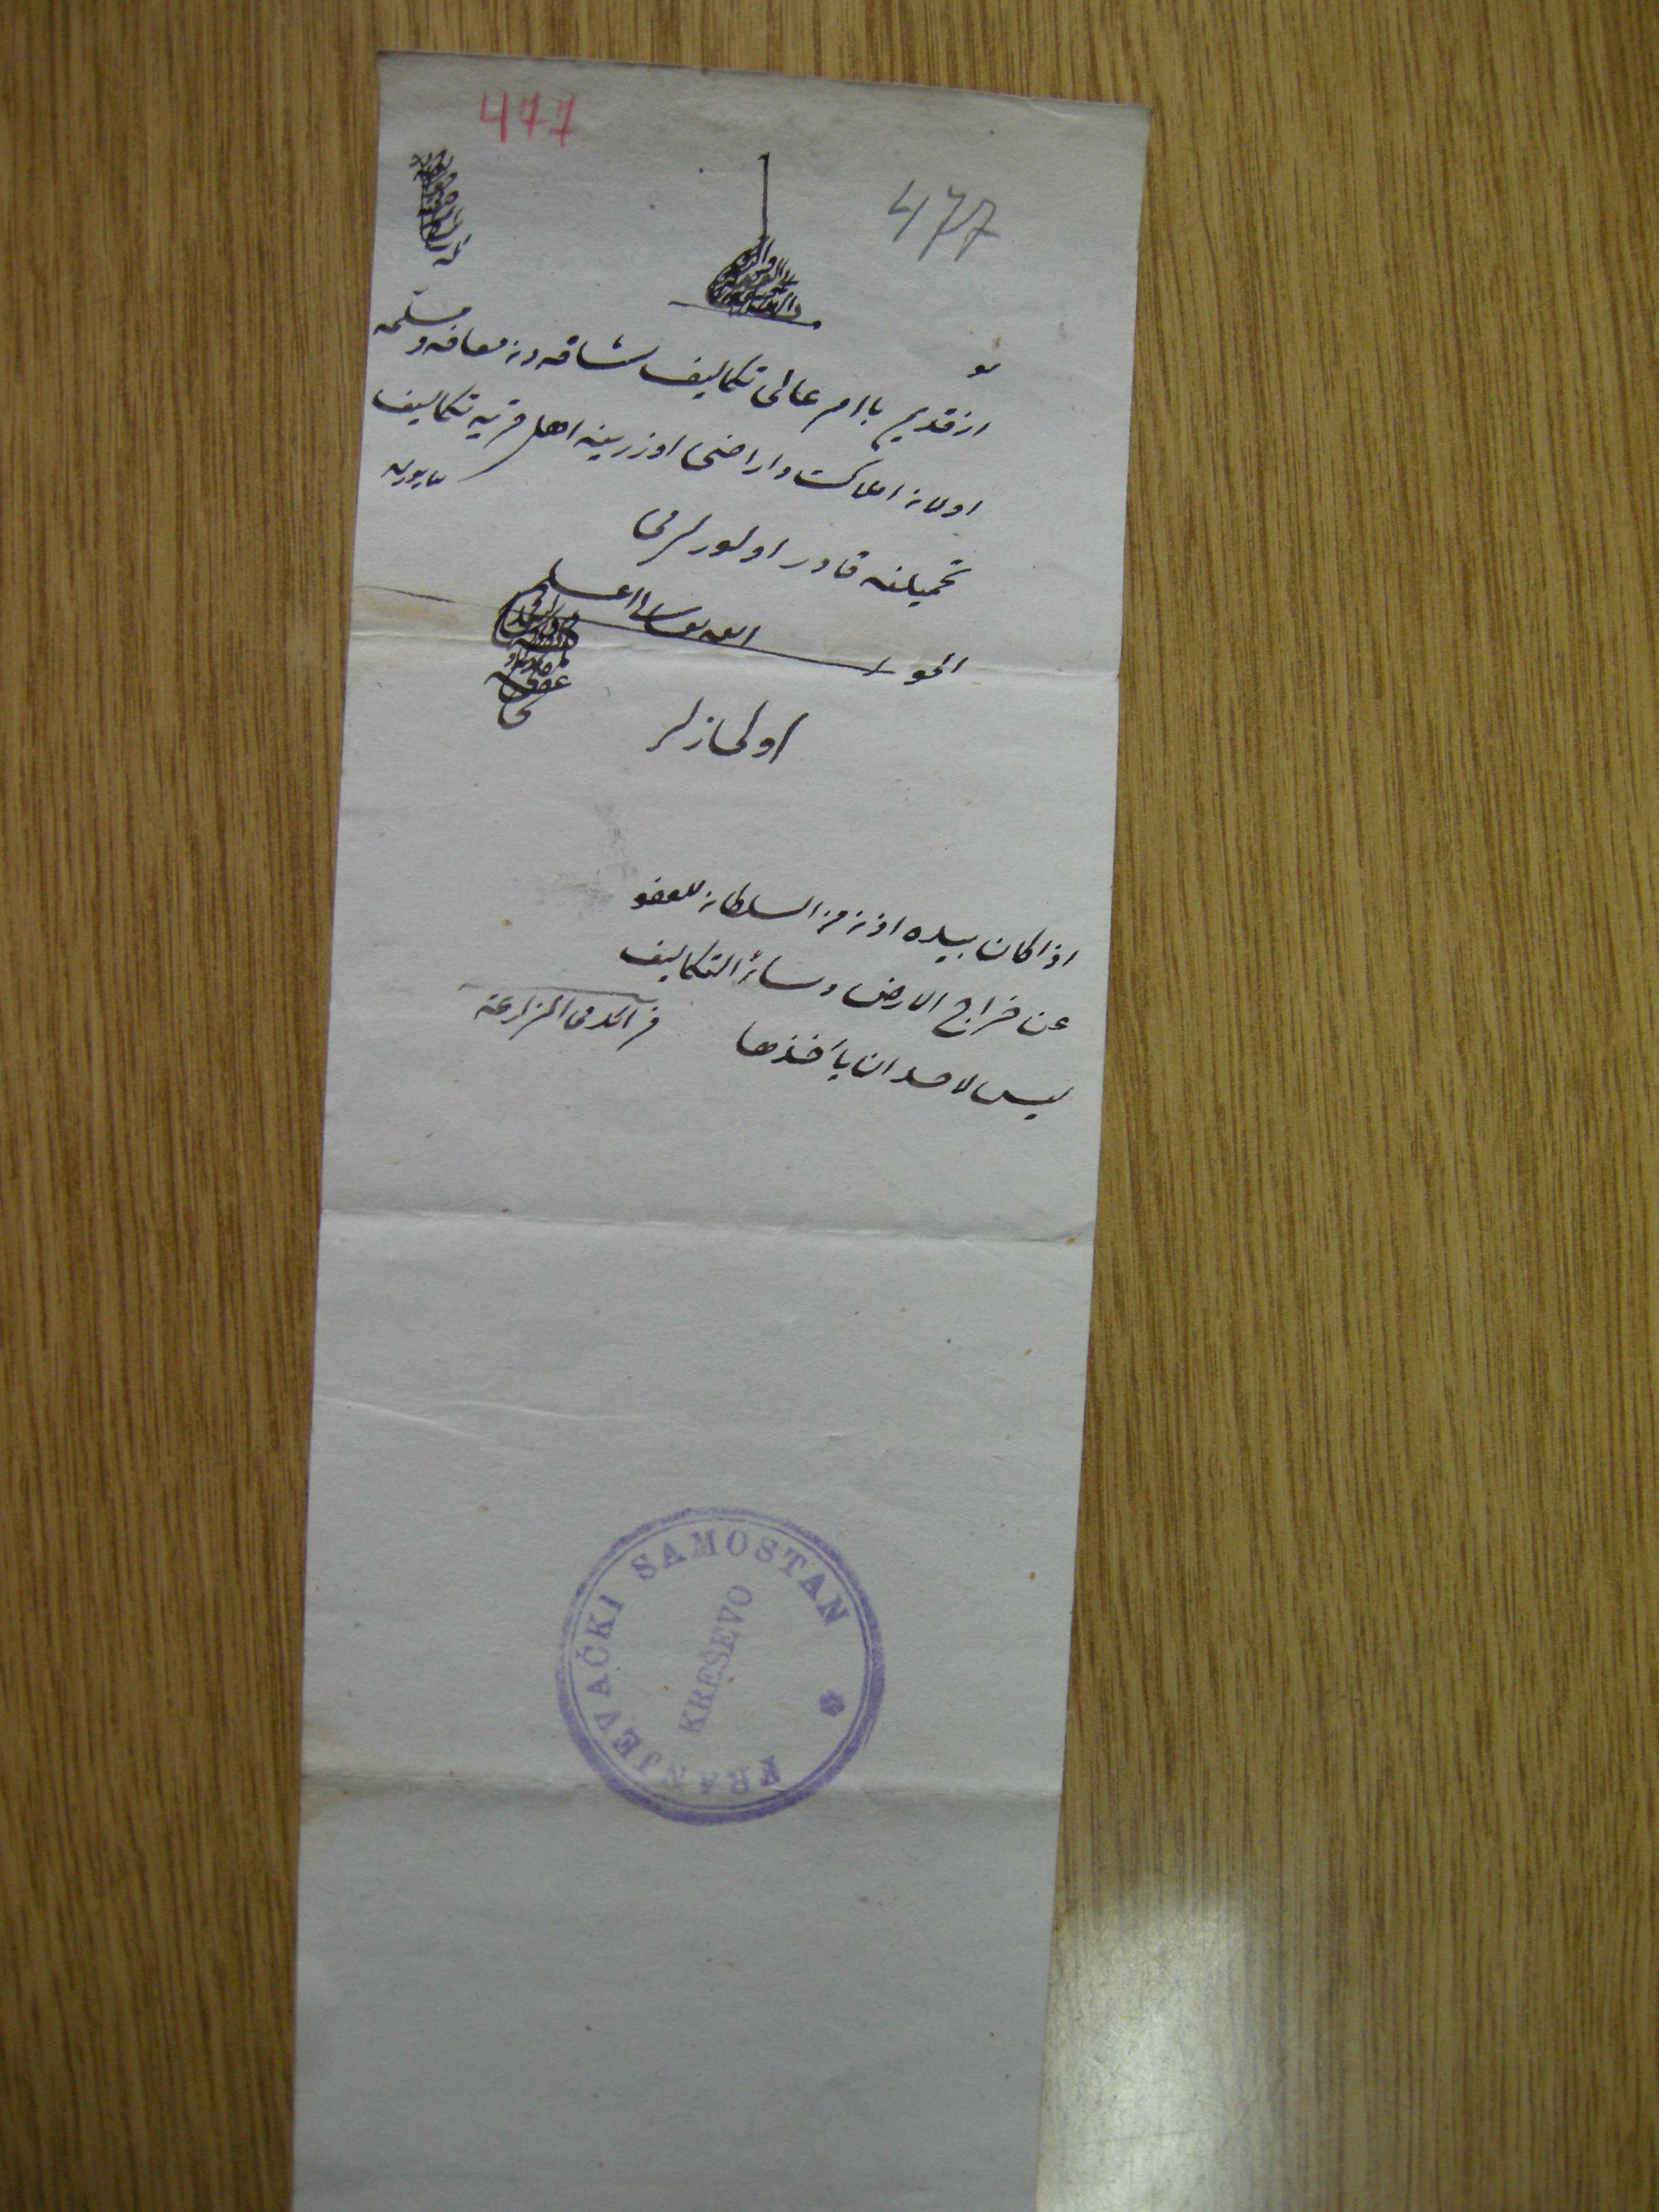 477
477
بو
از قديم با امر عالى تكاليف شاقه دن معافه و مسلمه
اولان املاك و اراضى اوزرينه اهل قريه تكاليف
تحميلنه قادر اولورلر مى
الجواب الله تعالى اعلم
اولمازلر
اذا كان بيده اذن من السلطان للعفو
عن خراج الارض و سائر التكاليف
ليس لاحد ان يأخذها من المزارعة
FRANJEVAČKI SAMOSTAN
KREŠEVO